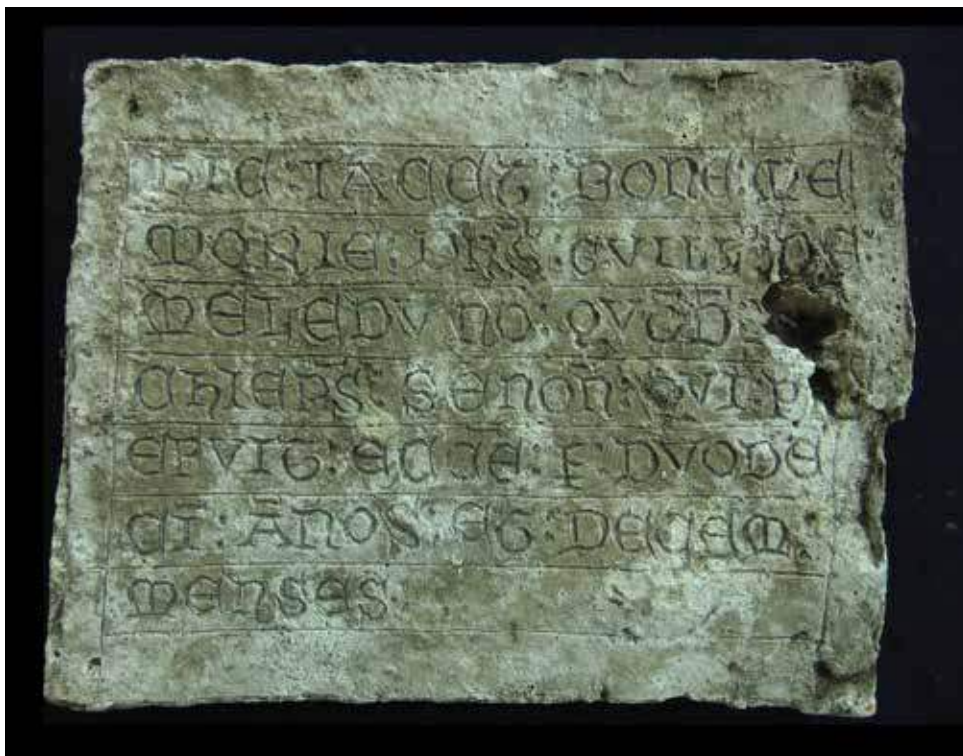 HIC : IACET : BONE : ME
MORIE : DNS : GVILL' : DE :
MELEDVNO : QVOD
CHIEPS : SENOÑ : QVI : P
EFVIT : ECCE : P' : DVODE
CI : AÑOS : ET : DECEM :
MENSES